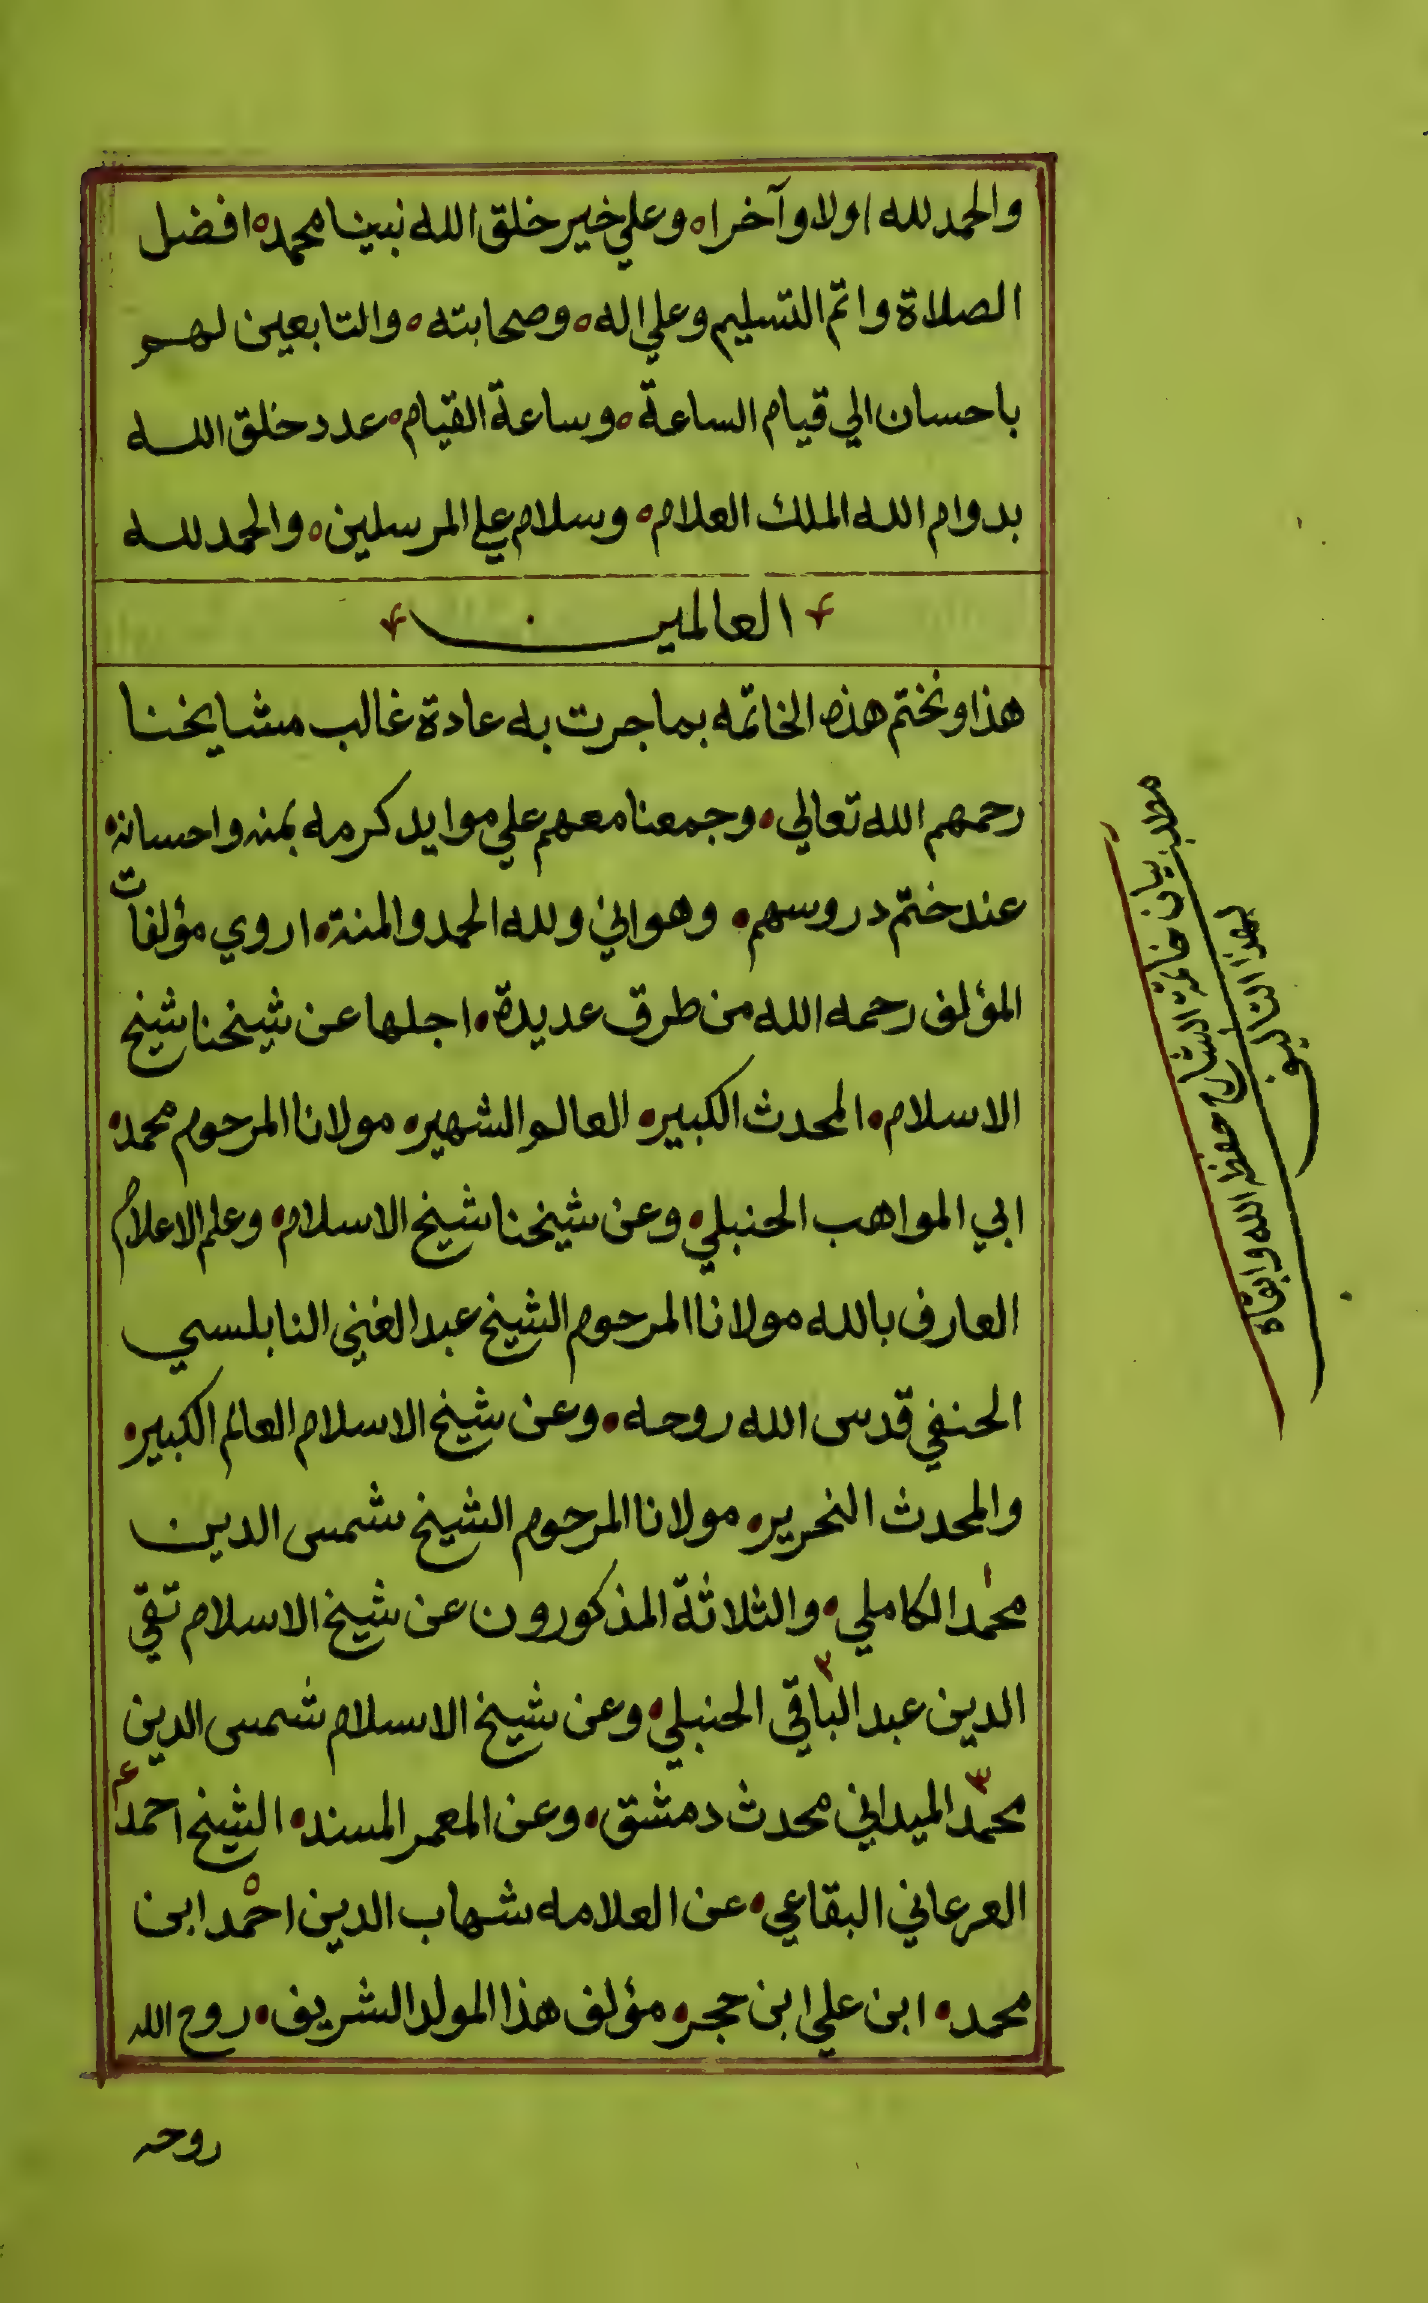 والحمد لله اولا وآخرا ۰ وعلي خير خلق الله نبينا محمد ۰ افضل
الصلاة واتمّ التسليم وعلي اله ۰ وصحابته ۰ والتابعين لهم
باحسان الي قيام الساعة ۰ وساعة القيام ۰ عدد خلق الله
بدوام الله الملك العلام ۰ وسلام علي المرسلين ۰ والحمد لله
العالمين
هذا ونختم هذه الخاتمه بما جرت به عادة غالب مشايخنا
رحمهم الله تعالي ۰ وجمعنا معهم علي موايد كرمه بمنه واحسانه ۰
عند ختم دروسهم ۰ وهو اني ولله الحمد والمنة ۰ اروي مؤلفات
المؤلف رحمه الله من طرق عديدة ۰ اجلها عن شيخنا شيخ
الاسلام ۰ المحدث الكبير ۰ العالم الشهير ۰ مولانا المرحوم محمد ۰
ابي المواهب الحنبلي ۰ وعن شيخنا شيخ الاسلام ۰ وعلم الاعلام
العارف بالله مولانا المرحوم الشيخ عبد الغني النابلسي
الحنفي قدس الله روحه ۰ وعن شيخ الاسلام العالم الكبير ۰
والمحدث النحرير ۰ مولانا المرحوم الشيخ شمس الدين
محمد الكاملي ۰ والثلاثة المذكورون عن شيخ الاسلام تقي
الدين عبد الباقي الحنبلي ۰ وعن شيخ الاسلام شمس الدين
محمد الميداني محدث دمشق ۰ وعن المعمر المسند ۰ الشيخ احمد
العرعاني البقاعي ۰ عن العلامه شهاب الدين احمد ابن
محمد ۰ ابن علي ابن حجر ۰ مؤلف هذا المولد الشريف ۰ روح الله
روحه
مطلب بيان خاتمة الشارح حفظه الله وابقاه
لهذا التاليف